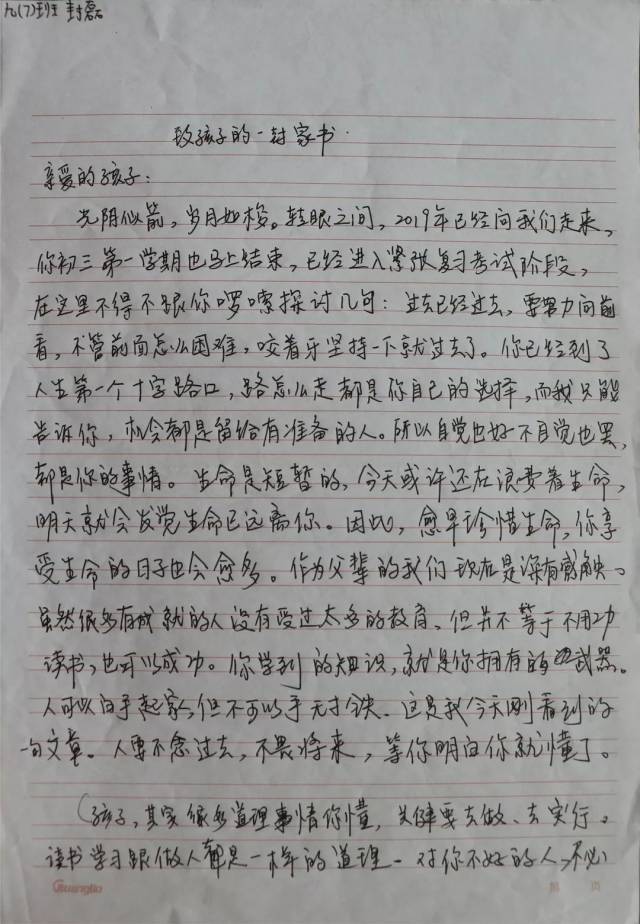 九(7)班 封磊
致孩子的一封家书.
亲爱的孩子:
光阴似箭,岁月如梭。转眼之间,2019年已经向我们走来,
你初三第一学期也马上结束,已经进入紧张复习考试阶段,
在这里不得不跟你啰嗦探讨几句:过去已经过去,要努力向前
看,不管前面怎么困难,咬着牙坚持一下就过去了。你已经到了
人生第一个十字路口,路怎么走都是你自己的选择,而我只能
告诉你,机会都是留给有准备的人。所以自觉也好不自觉也罢,
都是你的事情。生命是短暂的,今天或许还在浪费着生命,
明天就会发觉生命已远离你。因此,愈早珍惜生命,你享
受生命的日子也会愈多。作为父辈的我们现在是深有感触。
虽然很多有成就的人没有受过太多的教育,但并不等于不用功
读书,也可以成功。你学到的知识,就是你拥有的武器。
人可以白手起家,但不可以手无寸铁.这是我今天刚看到的
一句文章。人要不念过去,不畏将来,等你明白你就懂了。
(孩子,其实很多道理事情你懂,关健要去做、去实行。
读书学习跟做人都是一样的道理.对你不好的人,不必
Guangbo